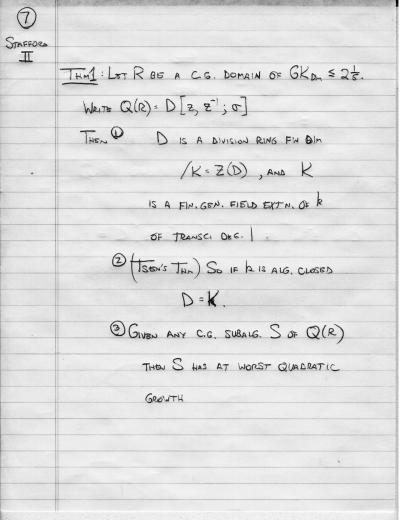 7
STAFFORD
II
THM1: LET R BE A C.G. DOMAIN OF GKDim ≤ 2⅕.
WRITE Q(R) = D[z, z⁻¹; σ]
THEN ① D IS A DIVISION RING FIN DIM
/K = Z(D), AND K
IS A FIN. GEN. FIELD EXTN. OF k
OF TRANSC. DEG. 1.
② (TSEN'S THM) SO IF k IS ALG. CLOSED
D = K.
③ GIVEN ANY C.G. SUBALG. S OF Q(R)
THEN S HAS AT WORST QUADRATIC
GROWTH